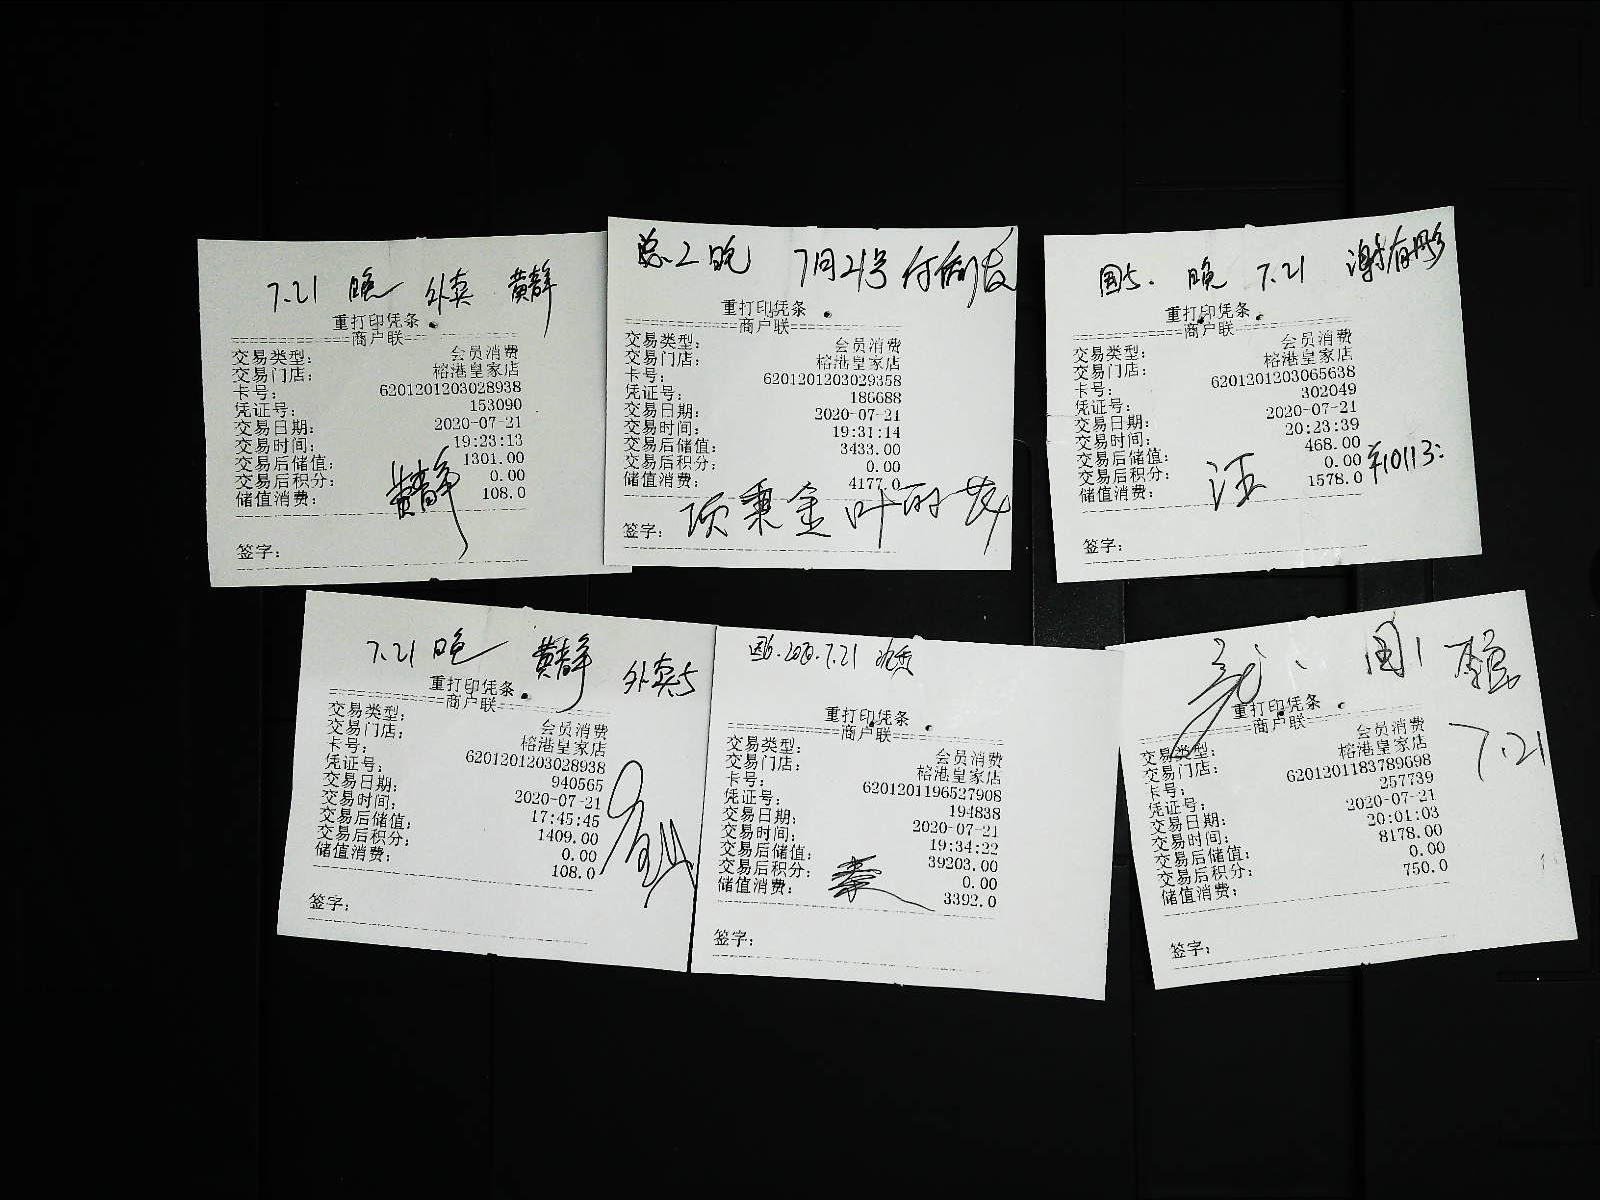 7.21 晚 外卖 黄静
重打印凭条
商户联
交易类型： 会员消费
交易门店： 榕港皇家店
卡号： 6201201203028938
凭证号： 153090
交易日期： 2020-07-21
交易时间： 19:23:13
交易后储值： 1301.00
交易后积分： 0.00
储值消费： 108.0
黄静
签字：
总.2 晚 7月21号
重打印凭条
商户联
交易类型： 会员消费
交易门店： 榕港皇家店
卡号： 6201201203029358
凭证号： 186688
交易日期： 2020-07-21
交易时间： 19:31:14
交易后储值： 3433.00
交易后积分： 0.00
储值消费： 4177.0
签字： 项秉金
国5. 晚 7.21 谢有彤
重打印凭条
商户联
交易类型： 会员消费
交易门店： 榕港皇家店
卡号： 6201201203065638
凭证号： 302049
交易日期： 2020-07-21
交易时间： 20:23:39
交易后储值： 468.00
交易后积分： 0.00
储值消费： 1578.0
汪
签字：
7.21 晚 黄静 外卖5
重打印凭条
商户联
交易类型： 会员消费
交易门店： 榕港皇家店
卡号： 6201201203028938
凭证号： 940565
交易日期： 2020-07-21
交易时间： 17:45:45
交易后储值： 1409.00
交易后积分： 0.00
储值消费： 108.0
签字：
国6. 2020.7.21
重打印凭条
商户联
交易类型： 会员消费
交易门店： 榕港皇家店
卡号： 6201201196527908
凭证号： 194838
交易日期： 2020-07-21
交易时间： 19:34:22
交易后储值： 39203.00
交易后积分： 0.00
储值消费： 3392.0
签字：
国1
7.21
重打印凭条
商户联
交易类型： 会员消费
交易门店： 榕港皇家店
卡号： 6201201183789698
凭证号： 257739
交易日期： 2020-07-21
交易时间： 20:01:03
交易后储值： 8178.00
交易后积分： 0.00
储值消费： 750.0
签字：